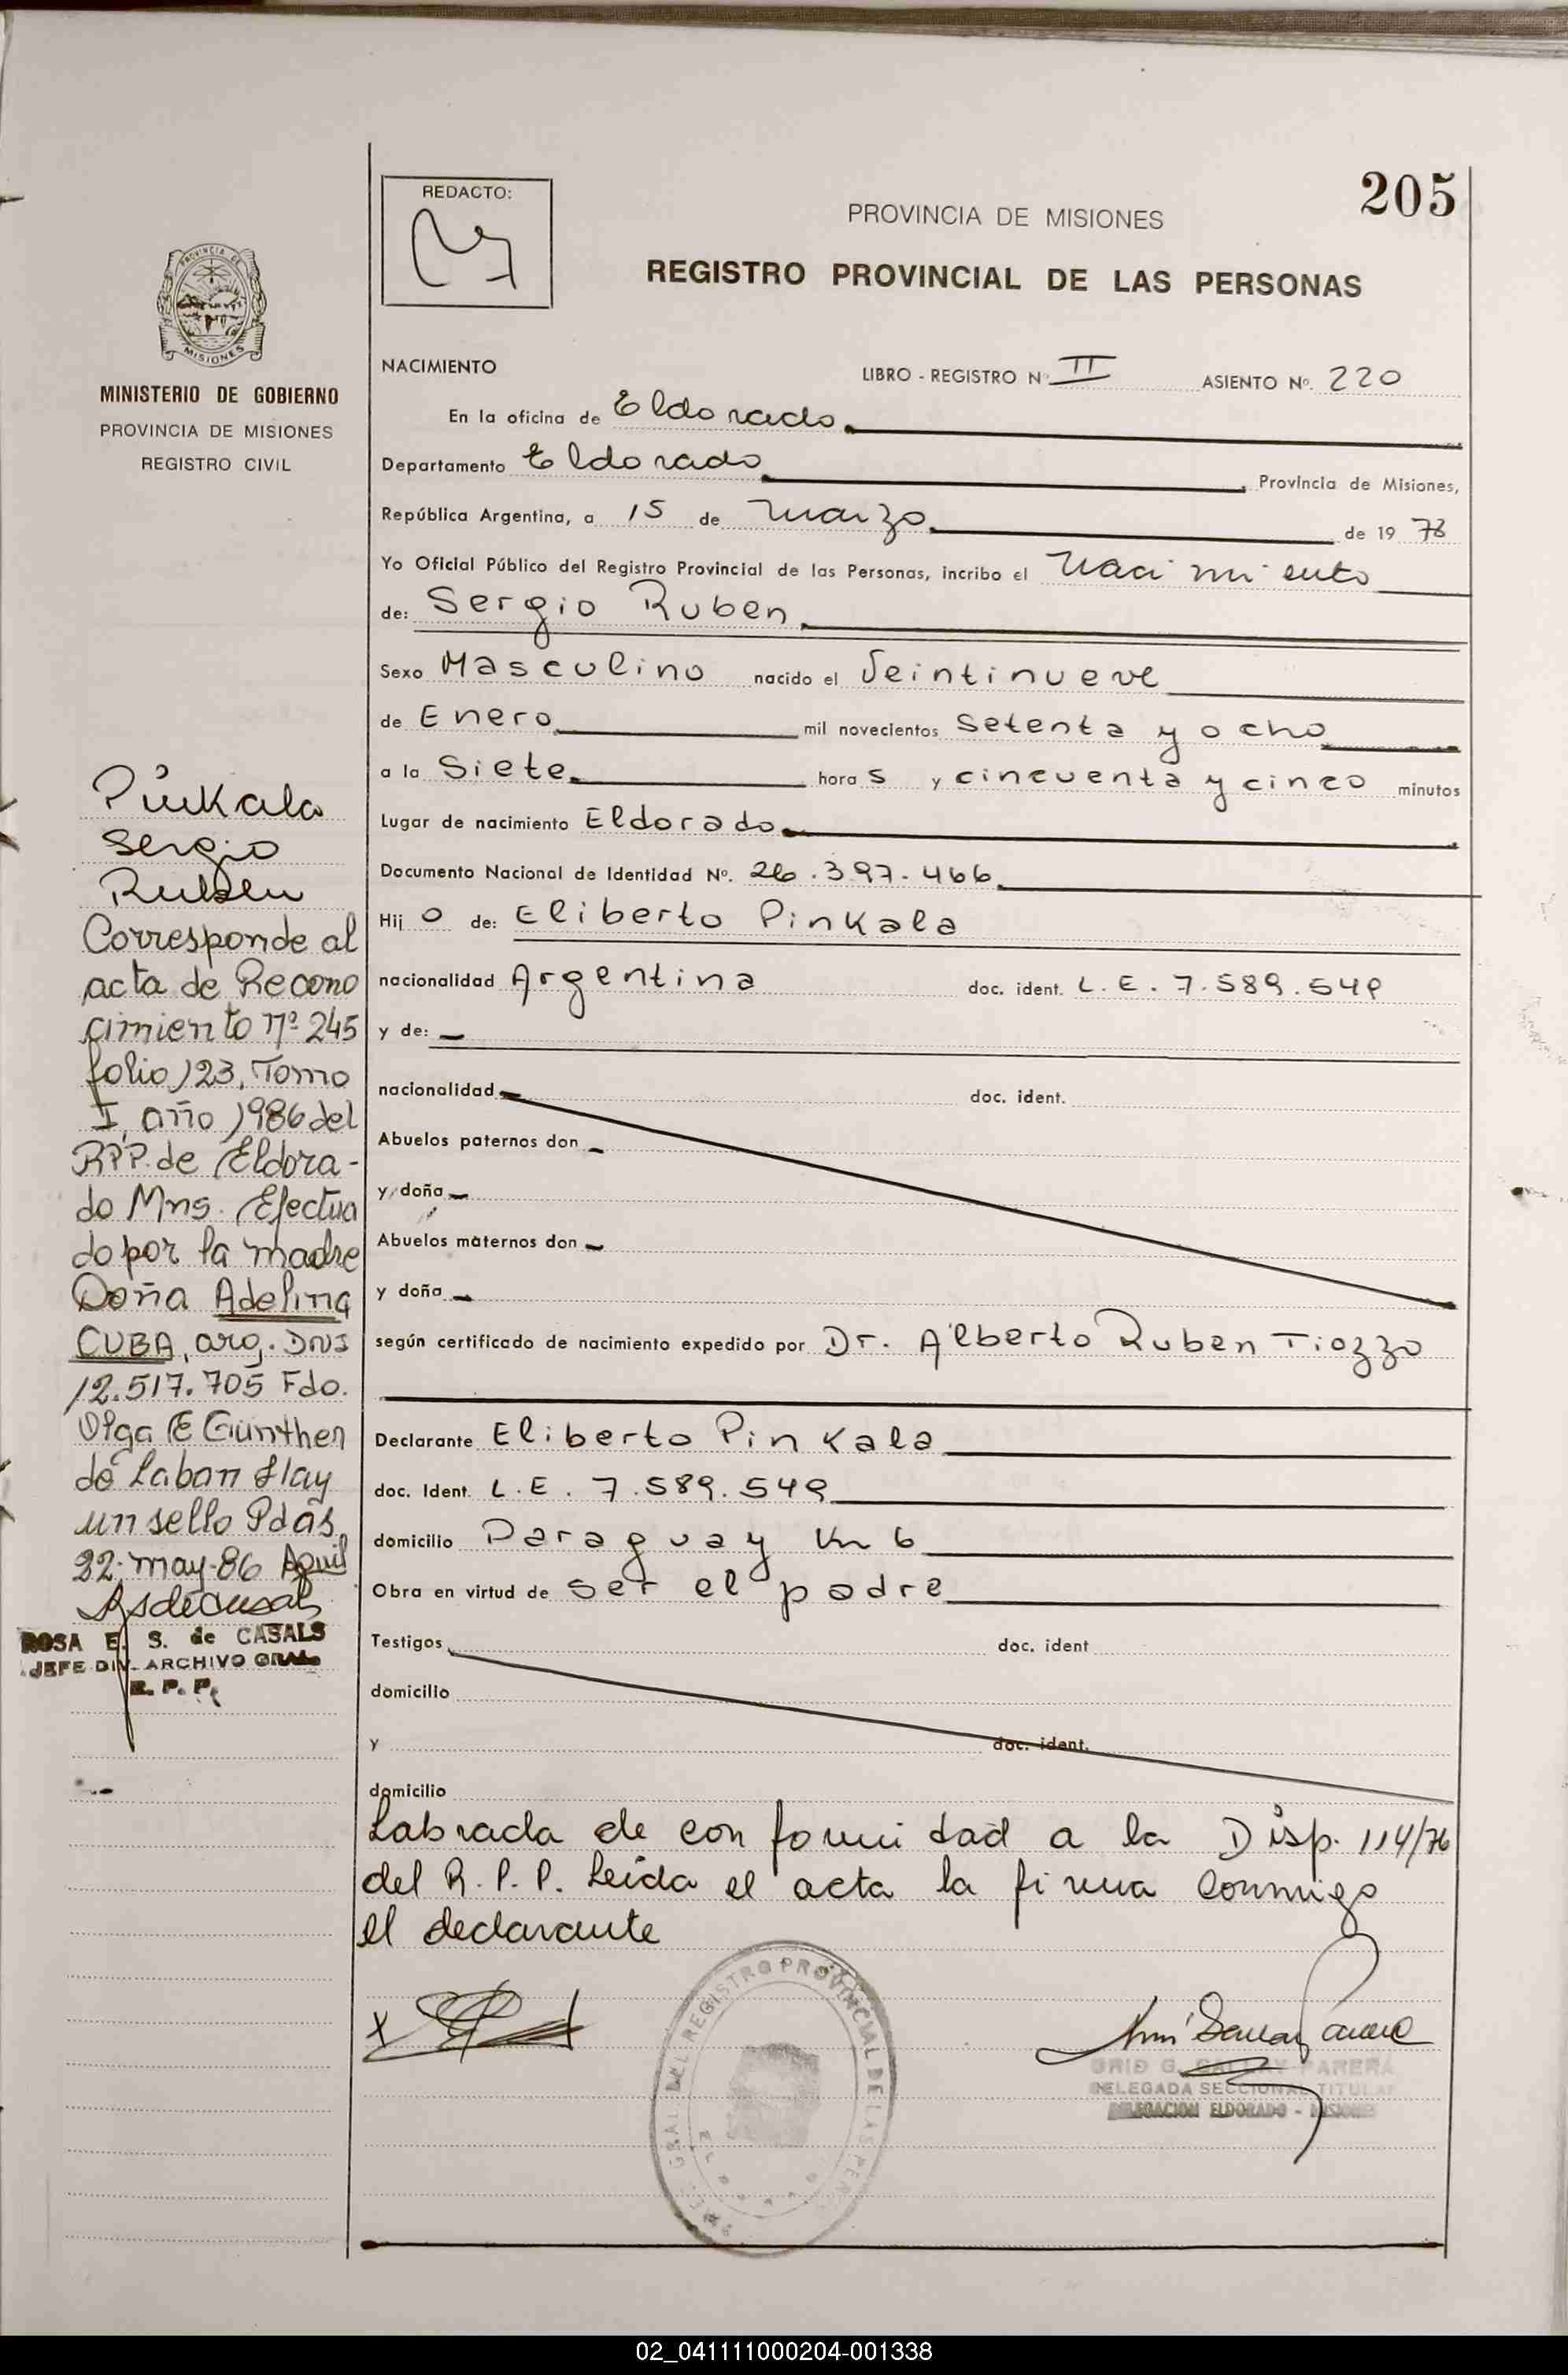 205
REDACTO:
PROVINCIA DE MISIONES
REGISTRO PROVINCIAL DE LAS PERSONAS
PROVINCIA DE
MISIONES
MINISTERIO DE GOBIERNO
PROVINCIA DE MISIONES
REGISTRO CIVIL
NACIMIENTO LIBRO - REGISTRO Nº II ASIENTO Nº. 220
En la oficina de Eldorado
Departamento Eldorado Provincia de Misiones,
República Argentina, a 15 de Marzo de 19 78
Yo Oficial Público del Registro Provincial de las Personas, incribo el Nacimiento
de: Sergio Ruben
Sexo Masculino nacido el Veintinueve
de Enero mil novecientos Setenta y ocho
a la Siete hora s y cincuenta y cinco minutos
Lugar de nacimiento Eldorado
Documento Nacional de Identidad Nº. 26.397.466
Hij o de: Eliberto Pinkala
nacionalidad Argentina doc. ident. L.E. 7.589.549
y de: –
nacionalidad doc. ident.
Abuelos paternos don –
y doña –
Abuelos maternos don –
y doña –
según certificado de nacimiento expedido por Dr. Alberto Ruben Tiozzo
Declarante Eliberto Pinkala
doc. Ident. L.E. 7.589.549
domicilio Paraguay Km 6
Obra en virtud de ser el padre
Testigos doc. ident
domicilio
y doc. ident.
domicilio
Labrada de conformidad a la Disp. 114/76
del R.P.P. Leida el acta la firma conmigo
el declarante
x
DEL REGISTRO PROVINCIAL DE LAS PERS
GRID G. GALLAY PARERA
DELEGADA SECCIONAL TITULAR
DELEGACION ELDORADO - MISIONES
Pinkala
Sergio
Ruben
Corresponde al
acta de Recono
cimiento nº 245
folio 123, Tomo
I, año 1986 del
RPP. de Eldora-
do Mns. Efectua
do por la madre
Doña Adelina
CUBA, arg. DNI
12.517.705 Fdo.
Olga E Günther
de Laban Hay
un sello Pdas.
22-may-86
ROSA E. S. de CASALS
JEFE DIV. ARCHIVO GRAL
R. P. P.
02_041111000204-001338